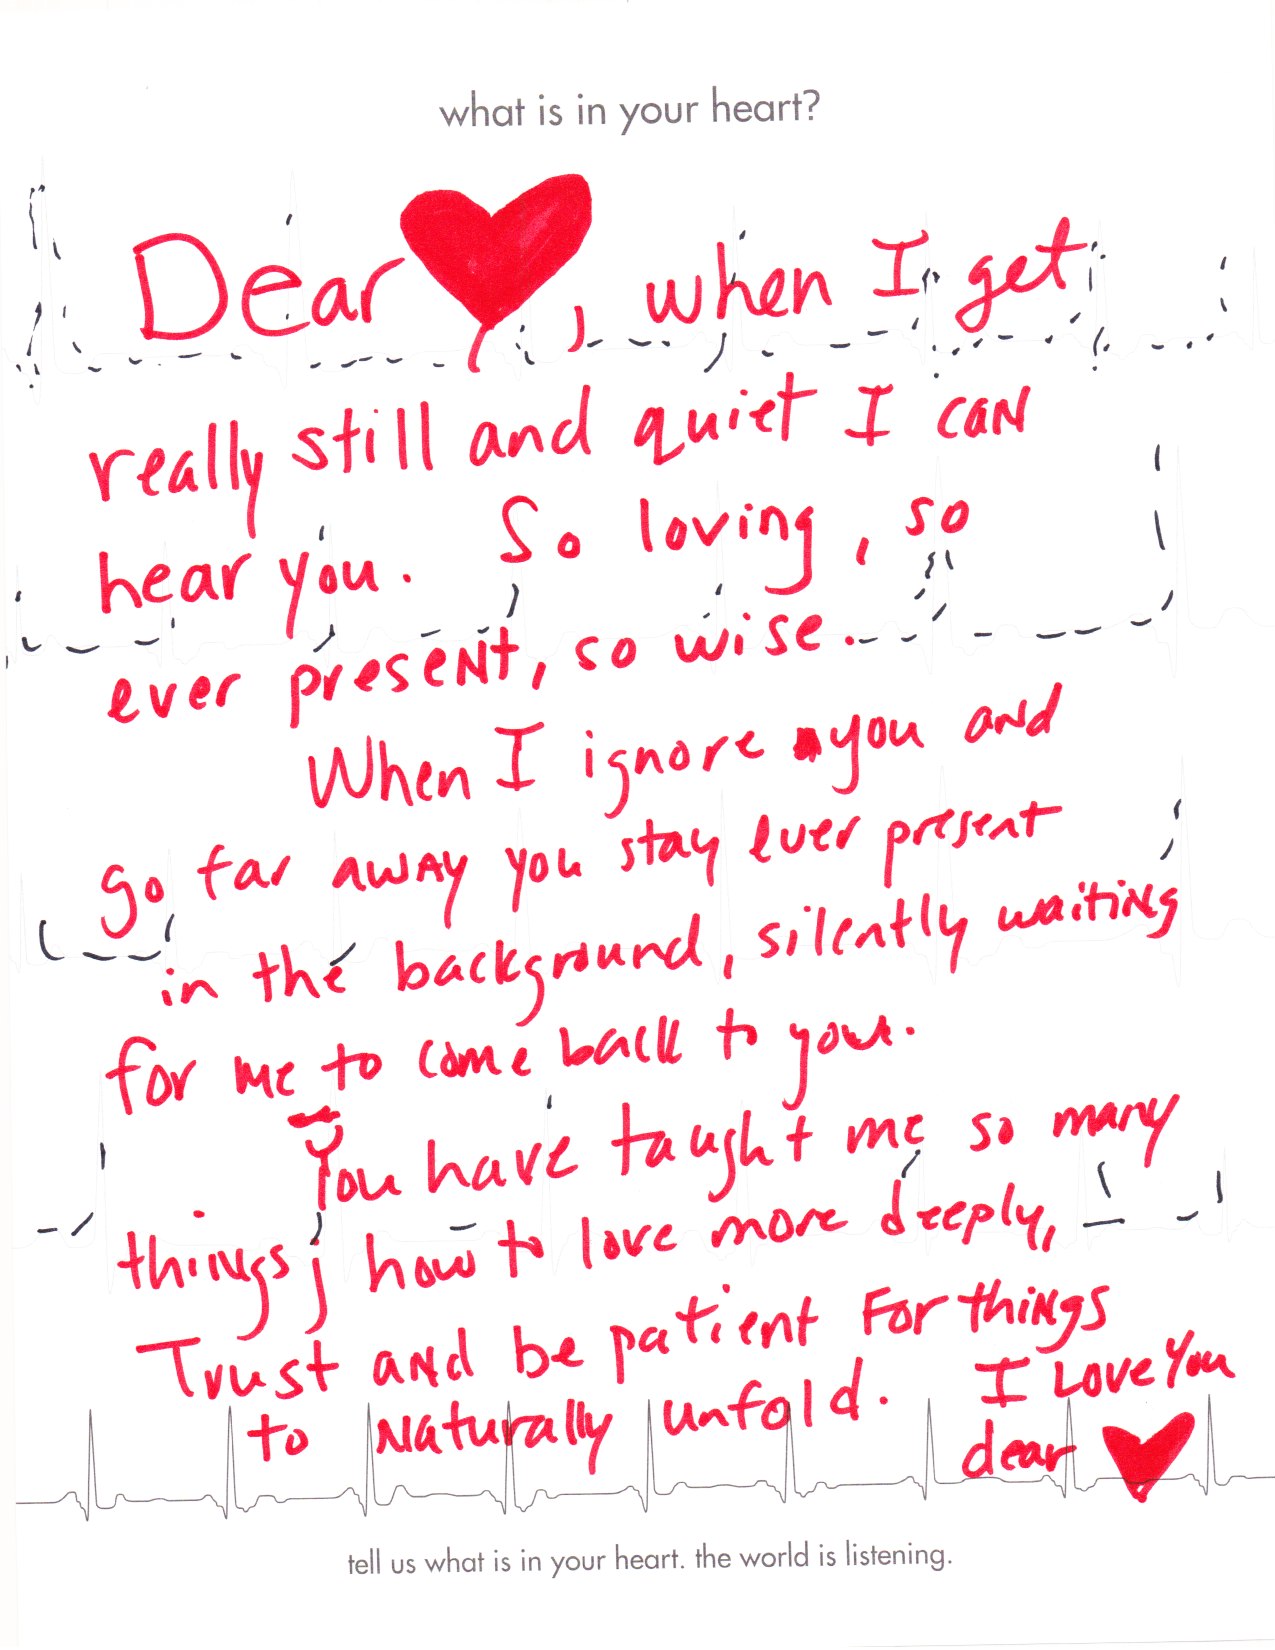 what is in your heart?
Dear ❤, when I get
really still and quiet I can
hear you. So loving, so
ever present, so wise.
When I ignore you and
go far away you stay ever present
in the background, silently waiting
for me to come back to you.
You have taught me so many
things; how to love more deeply,
Trust and be patient For things
to Naturally unfold. I Love You
dear ❤
tell us what is in your heart. the world is listening.